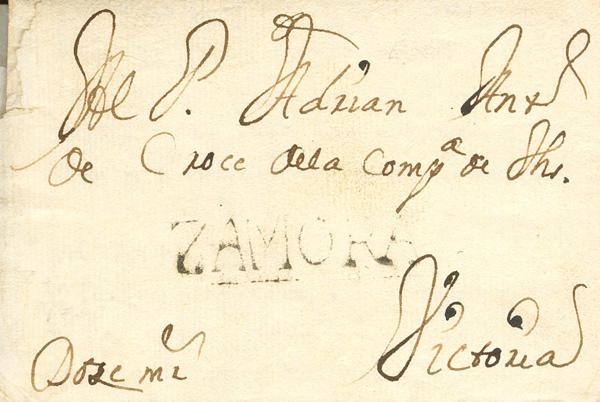 Al P. Adrian Antº
de Croce dela Comp.ª de Jhs.
ZAMORA
Victoria